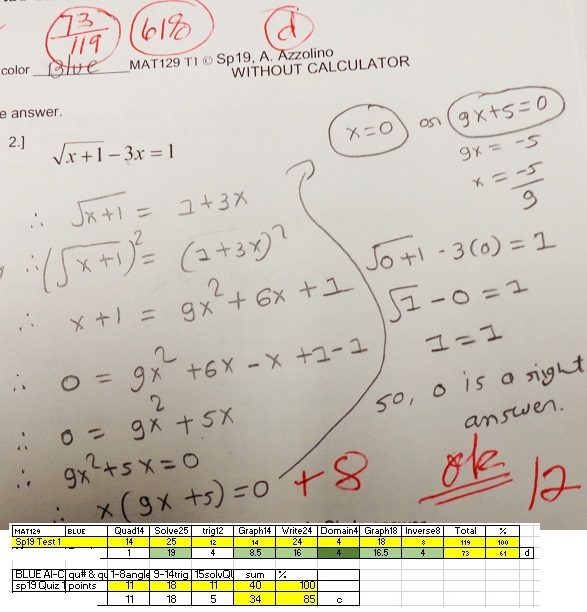 73/119 61% d
color Blue MAT129 T1 © Sp19, A. Azzolino
WITHOUT CALCULATOR
e answer.
2.] √x+1 − 3x = 1
∴ √x+1 = 1+3x
∴ (√x+1)² = (1+3x)²
∴ x+1 = 9x² + 6x + 1
∴ 0 = 9x² + 6x − x + 1 − 1
∴ 0 = 9x² + 5x
∴ 9x² + 5x = 0
∴ x(9x + 5) = 0
x = 0 or 9x+5 = 0
9x = −5
x = −5/9
√0+1 − 3(0) = 1
√1 − 0 = 1
1 = 1
so, 0 is a right
answer.
+8 ok 12
MAT129 BLUE Quad14 Solve25 trig12 Graph14 Write24 Domain4 Graph18 Inverse8 Total %
Sp19 Test 1 14 25 12 14 24 4 18 8 119 100
1 19 4 8.5 16 4 16.5 4 73 61 d
BLUE AI-C qu# & qu 1-8angle 9-14trig 15solvQu sum %
sp19 Quiz 1 points 11 18 11 40 100
11 18 5 34 85 c